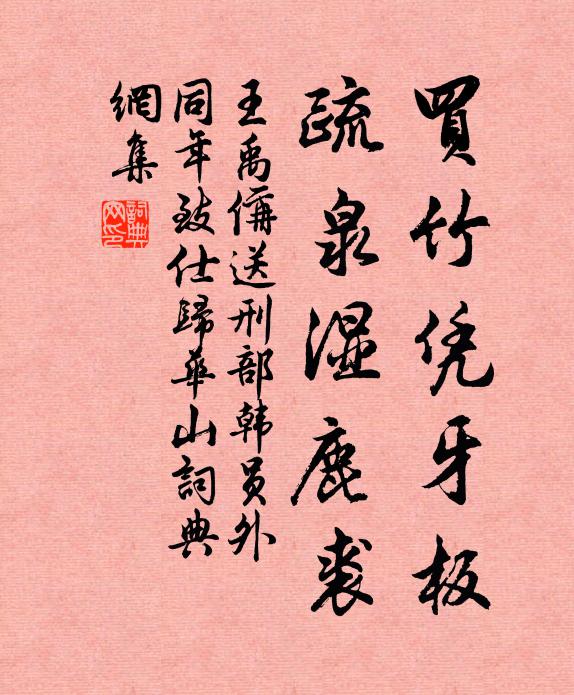 買竹凭牙板
疏泉湿鹿裘
王禹偁送刑部韩员外
同年致仕歸華山詞典
網集
詞典
网印